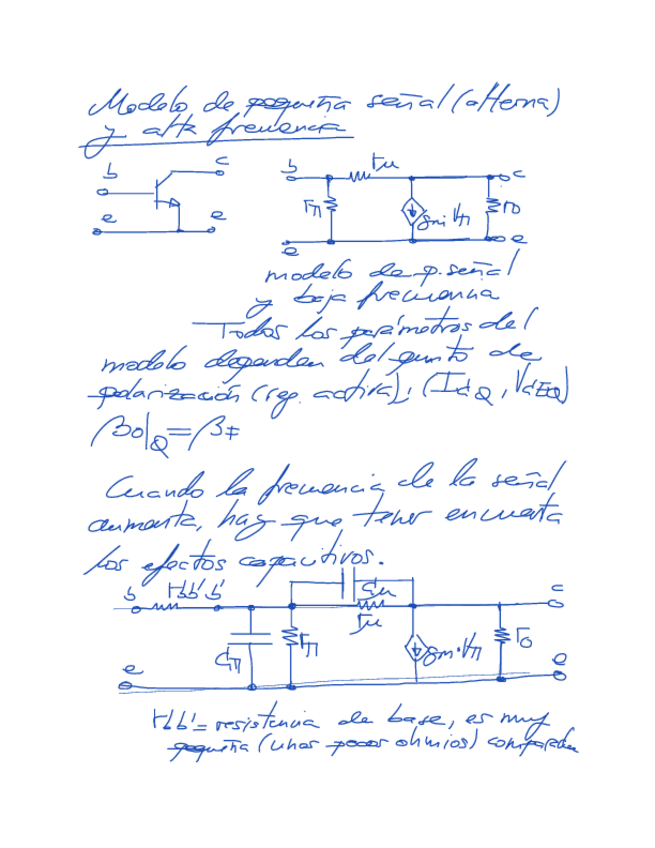 Modelo de pequeña señal (alterna)
y alta frecuencia
b c
e e
b rμ c
rπ gm·Vπ ro
e e
modelo de p. señal
y baja frecuencia
Todos los parámetros del
modelo dependen del punto de
polarización (reg. activa),
βo|Q = βF
Cuando la frecuencia de la señal
aumenta, hay que tener en cuenta
los efectos capacitivos.
b rbb' b' Cμ c
rμ
Cπ rπ gm·Vπ ro
e e
rbb' = resistencia de base, es muy
pequeña (unos pocos ohmios) comparada